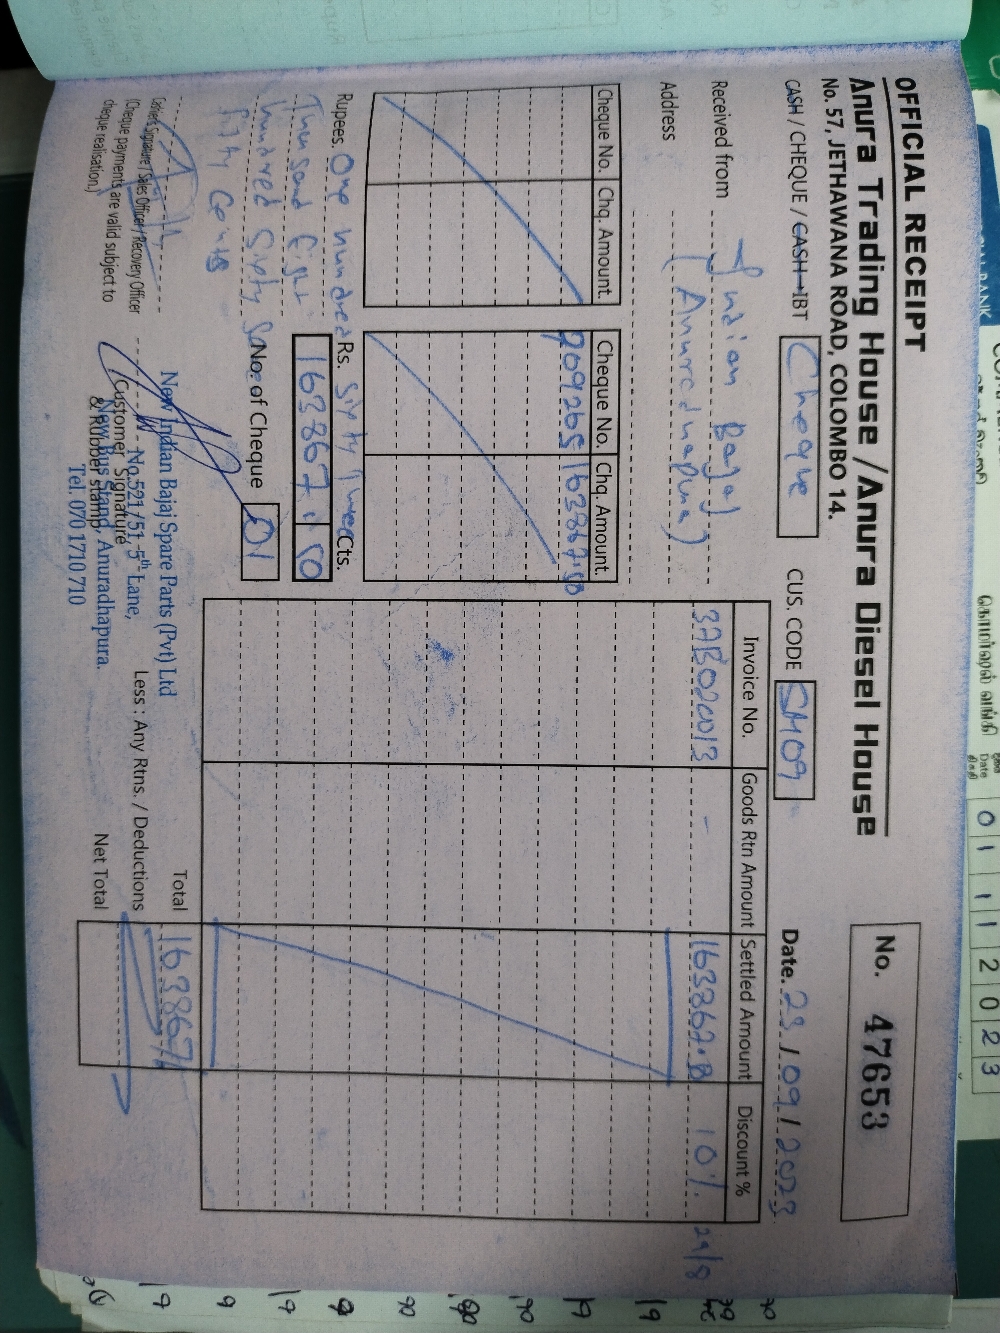 OFFICIAL RECEIPT
Anura Trading House / Anura Diesel House
No. 57, JETHAWANA ROAD, COLOMBO 14.
No. 47653
CASH / CHEQUE / CASH IBT Cheque CUS. CODE SM09 Date. 23/09/2023
Received from Indian Bajaj
Address (Anuradhapura)
Cheque No. Chq. Amount. Cheque No. Chq. Amount.
909265 163867.50
Invoice No. Goods Rtn Amount Settled Amount Discount %
3AB020013 - 163867.50 10% 29/8
Rupees. One hundred Sixty three Rs. Cts.
Thousand Eight 163867.50
Hundred Sixty Seven No. of Cheque 01
Fifty Cents
Total 163867/
Less : Any Rtns. / Deductions
Net Total
Cashier's Signature / Sales Officer / Recovery Officer
(Cheque payments are valid subject to
cheque realisation.)
Customer Signature
& Rubber stamp
New Indian Bajaj Spare Parts (Pvt) Ltd
No.521/51, 5th Lane,
New Bus Stand, Anuradhapura.
Tel. 070 1710 710
BANK
Date
0 1 1 1 2 0 2 3